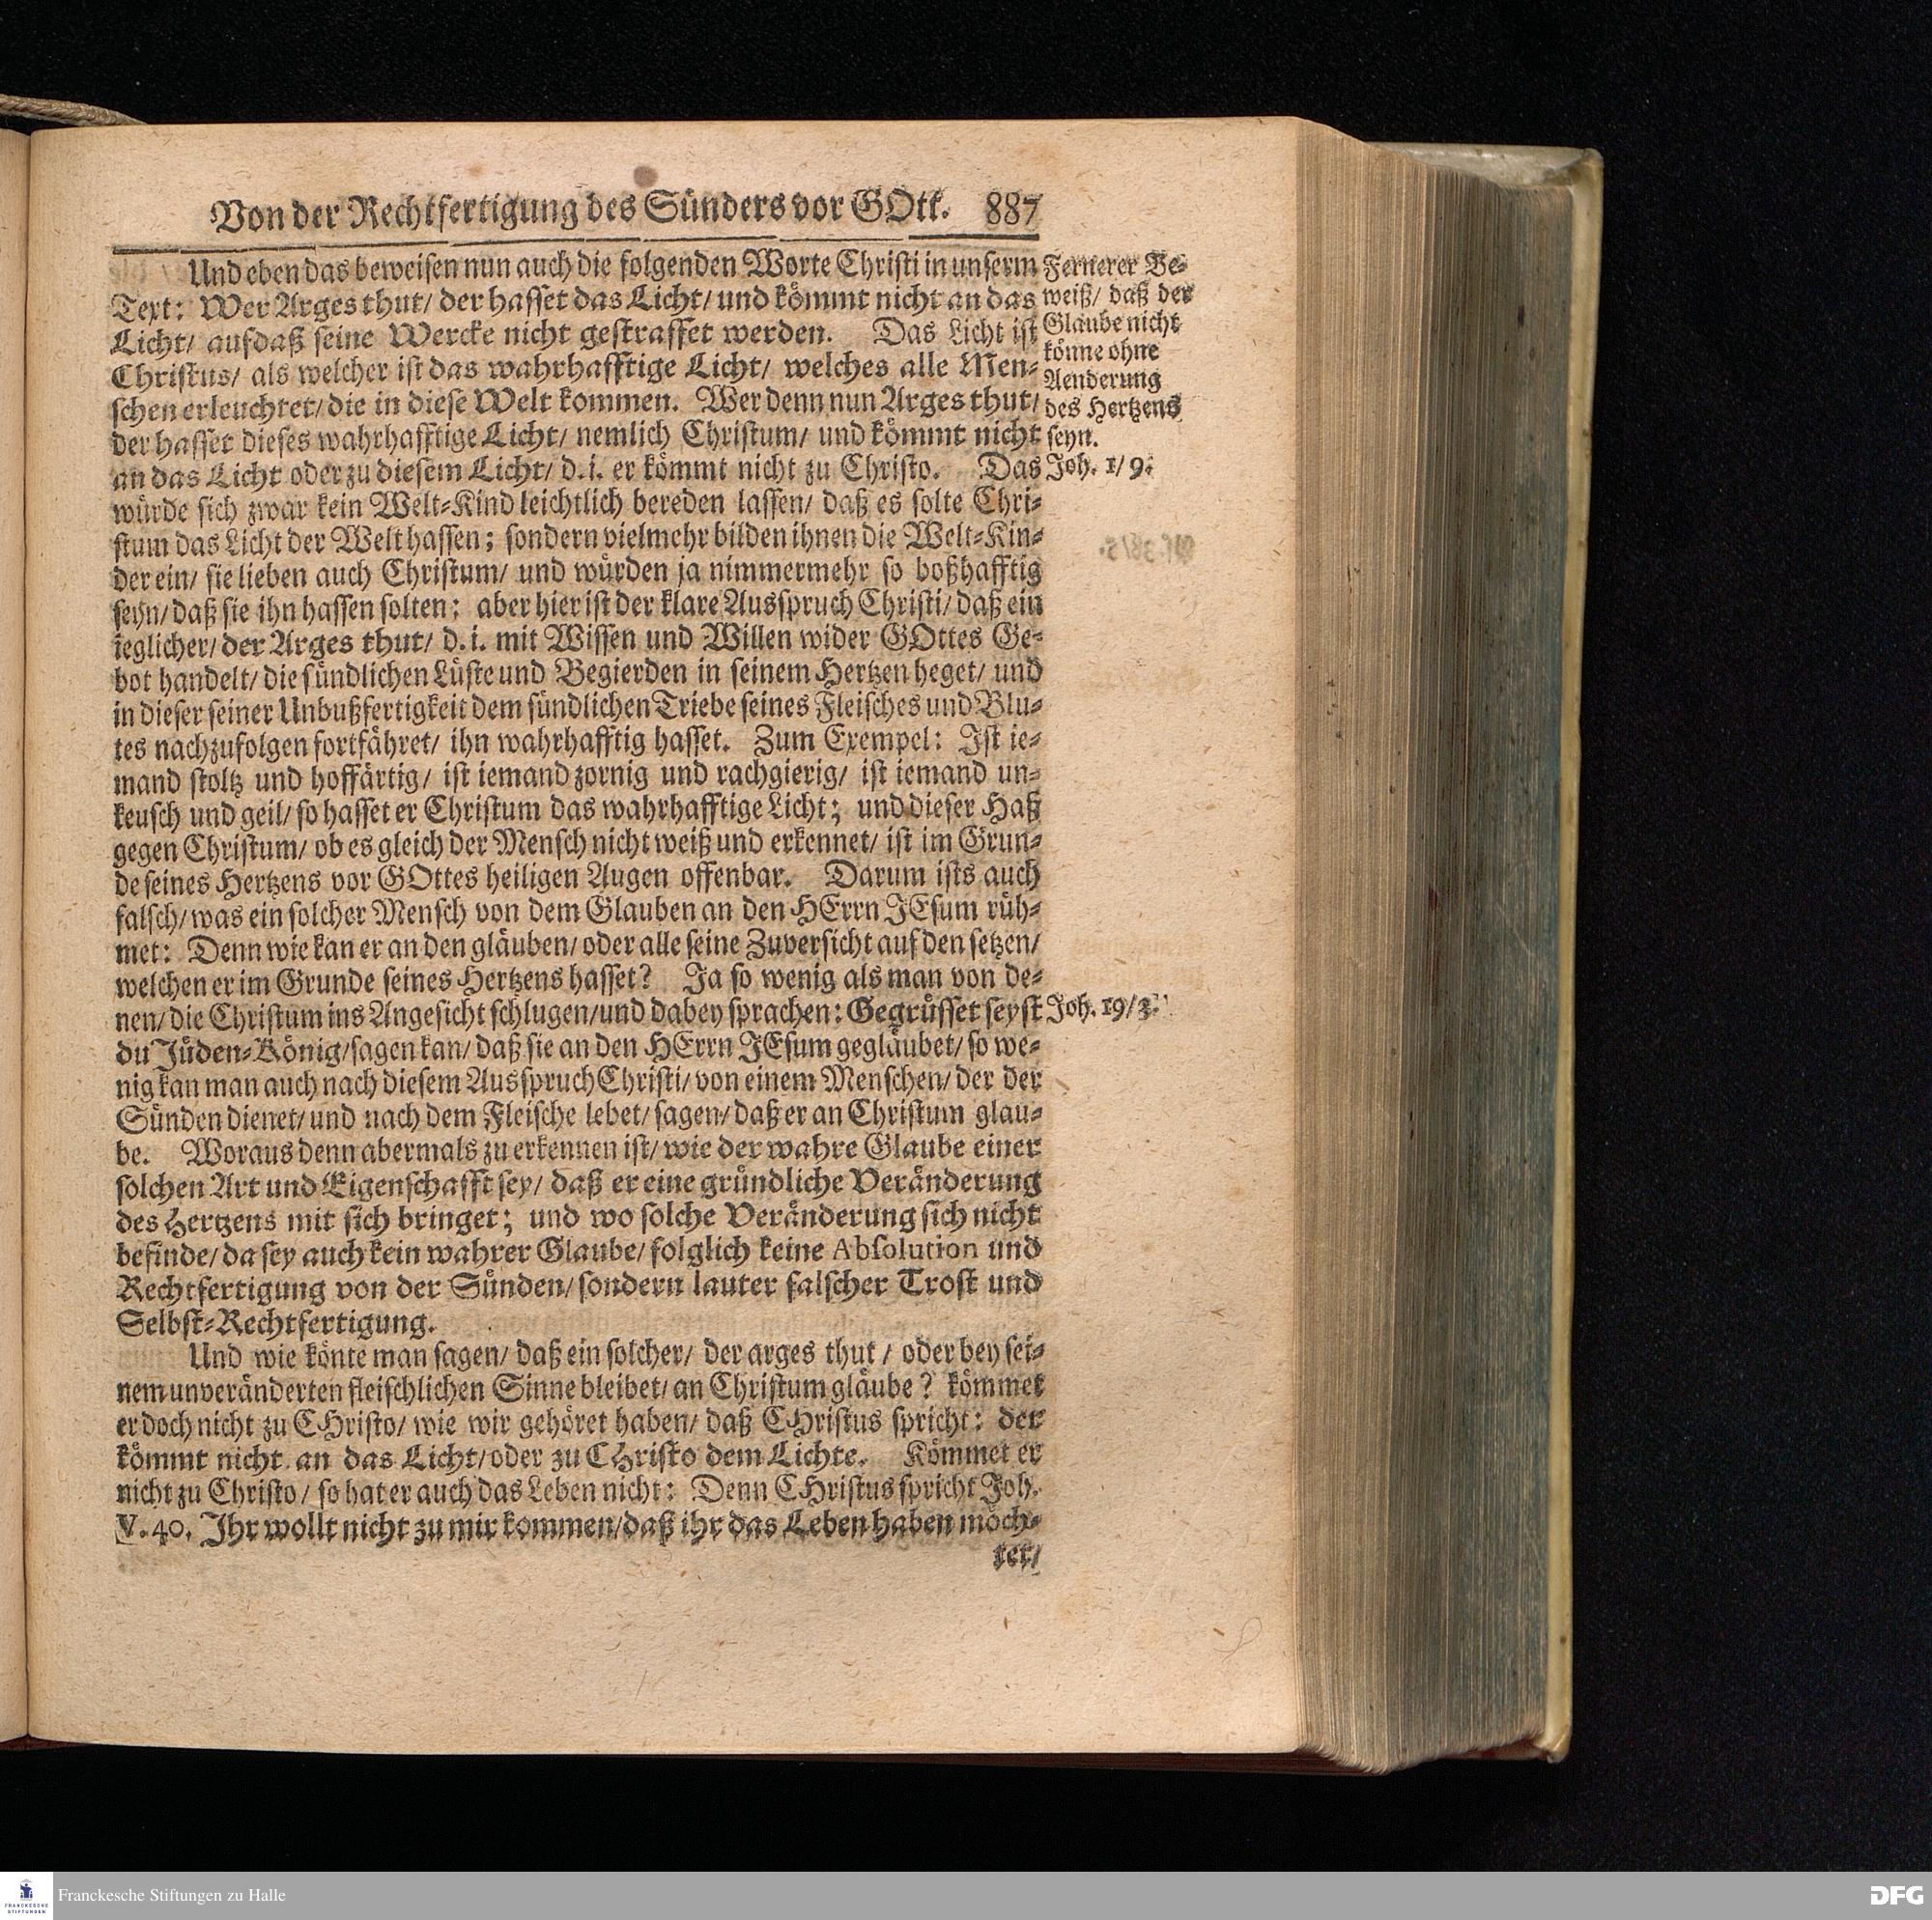 Von der Rechtfertigung des Sünders vor GOtt. 887
Und eben das beweisen nun auch die folgenden Worte Christi in unserm
Text: Wer Arges thut/ der hasset das Licht/ und kömmt nicht an das
Licht/ aufdaß seine Wercke nicht gestraffet werden. Das Licht ist
Christus/ als welcher ist das wahrhafftige Licht/ welches alle Men-
schen erleuchtet/ die in diese Welt kommen. Wer denn nun Arges thut/
der hasset dieses wahrhafftige Licht/ nemlich Christum/ und kömmt nicht
an das Licht oder zu diesem Licht/ d.i. er kömmt nicht zu Christo. Das
würde sich zwar kein Welt-Kind leichtlich bereden lassen/ daß es solte Chri-
stum das Licht der Welt hassen; sondern vielmehr bilden ihnen die Welt-Kin-
der ein/ sie lieben auch Christum/ und würden ja nimmermehr so boßhafftig
seyn/ daß sie ihn hassen solten: aber hier ist der klare Ausspruch Christi/ daß ein
ieglicher/ der Arges thut/ d.i. mit Wissen und Willen wider GOttes Ge-
bot handelt/ die sündlichen Lüste und Begierden in seinem Hertzen heget/ und
in dieser seiner Unbußfertigkeit dem sündlichen Triebe seines Fleisches und Blu-
tes nachzufolgen fortfähret/ ihn wahrhafftig hasset. Zum Exempel: Ist ie-
mand stoltz und hoffärtig/ ist iemand zornig und rachgierig/ ist iemand un-
keusch und geil/ so hasset er Christum das wahrhafftige Licht; und dieser Haß
gegen Christum/ ob es gleich der Mensch nicht weiß und erkennet/ ist im Grun-
de seines Hertzens vor GOttes heiligen Augen offenbar. Darum ists auch
falsch/ was ein solcher Mensch von dem Glauben an den HErrn JEsum rüh-
met: Denn wie kan er an den gläuben/ oder alle seine Zuversicht auf den setzen/
welchen er im Grunde seines Hertzens hasset? Ja so wenig als man von de-
nen/ die Christum ins Angesicht schlugen/ und dabey sprachen: Gegrüsset seyst
du Jüden-König/ sagen kan/ daß sie an den HErrn JEsum gegläubet/ so we-
nig kan man auch nach diesem Ausspruch Christi/ von einem Menschen/ der der
Sünden dienet/ und nach dem Fleische lebet/ sagen/ daß er an Christum glau-
be. Woraus denn abermals zu erkennen ist/ wie der wahre Glaube einer
solchen Art und Eigenschafft sey/ daß er eine gründliche Veränderung
des Hertzens mit sich bringet; und wo solche Veränderung sich nicht
befinde/ da sey auch kein wahrer Glaube/ folglich keine Absolution und
Rechtfertigung von der Sünden/ sondern lauter falscher Trost und
Selbst-Rechtfertigung.
Und wie könte man sagen/ daß ein solcher/ der arges thut/ oder bey sei-
nem unveränderten fleischlichen Sinne bleibet/ an Christum gläube? kömmet
er doch nicht zu CHristo/ wie wir gehöret haben/ daß CHristus spricht: der
kömmt nicht an das Licht/ oder zu CHristo dem Lichte. Kömmet er
nicht zu Christo/ so hat er auch das Leben nicht: Denn CHristus spricht Joh.
V. 40. Ihr wollt nicht zu mir kommen/ daß ihr das Leben haben möch-
tet/
Fernerer Be-
weiß/ daß der
Glaube nicht
könne ohne
Aenderung
des Hertzens
seyn.
Joh. 1/ 9.
Joh. 19/ 3.
FRANCKESCHE
STIFTUNGEN
Franckesche Stiftungen zu Halle
DFG